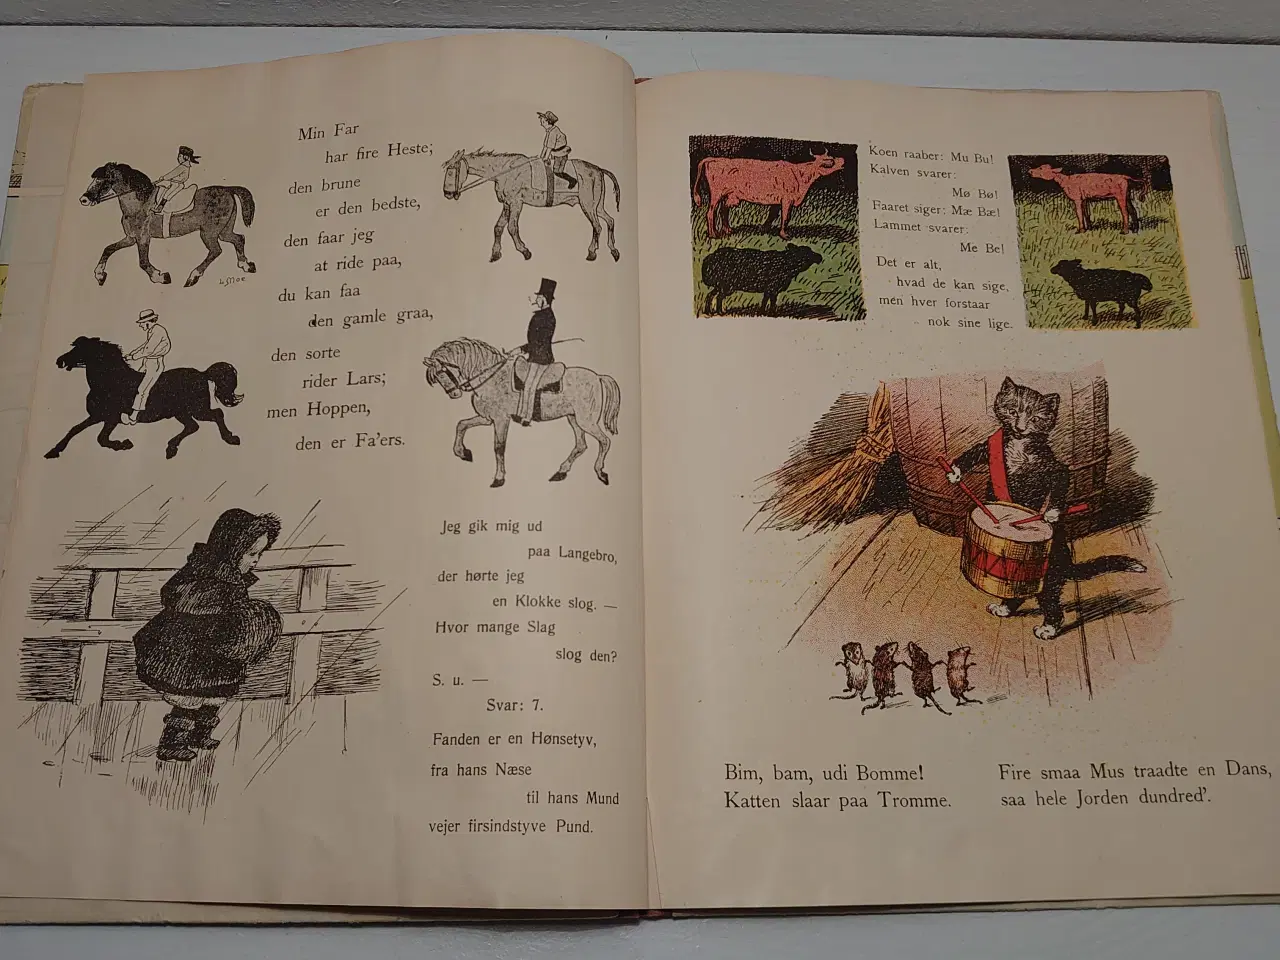 Min Far
har fire Heste;
den brune
er den bedste,
den faar jeg
at ride paa,
du kan faa
den gamle graa,
den sorte
rider Lars;
men Hoppen,
den er Fa'ers.
Jeg gik mig ud
paa Langebro,
der hørte jeg
en Klokke slog. —
Hvor mange Slag
slog den?
S. u. —
Svar: 7.
Fanden er en Hønsetyv,
fra hans Næse
til hans Mund
vejer firsindstyve Pund.
Koen raaber: Mu Bu!
Kalven svarer:
Mø Bø!
Faaret siger: Mæ Bæ!
Lammet svarer:
Me Be!
Det er alt,
hvad de kan sige,
men hver forstaar
nok sine lige.
Bim, bam, udi Bomme!
Katten slaar paa Tromme.
Fire smaa Mus traadte en Dans,
saa hele Jorden dundred'.